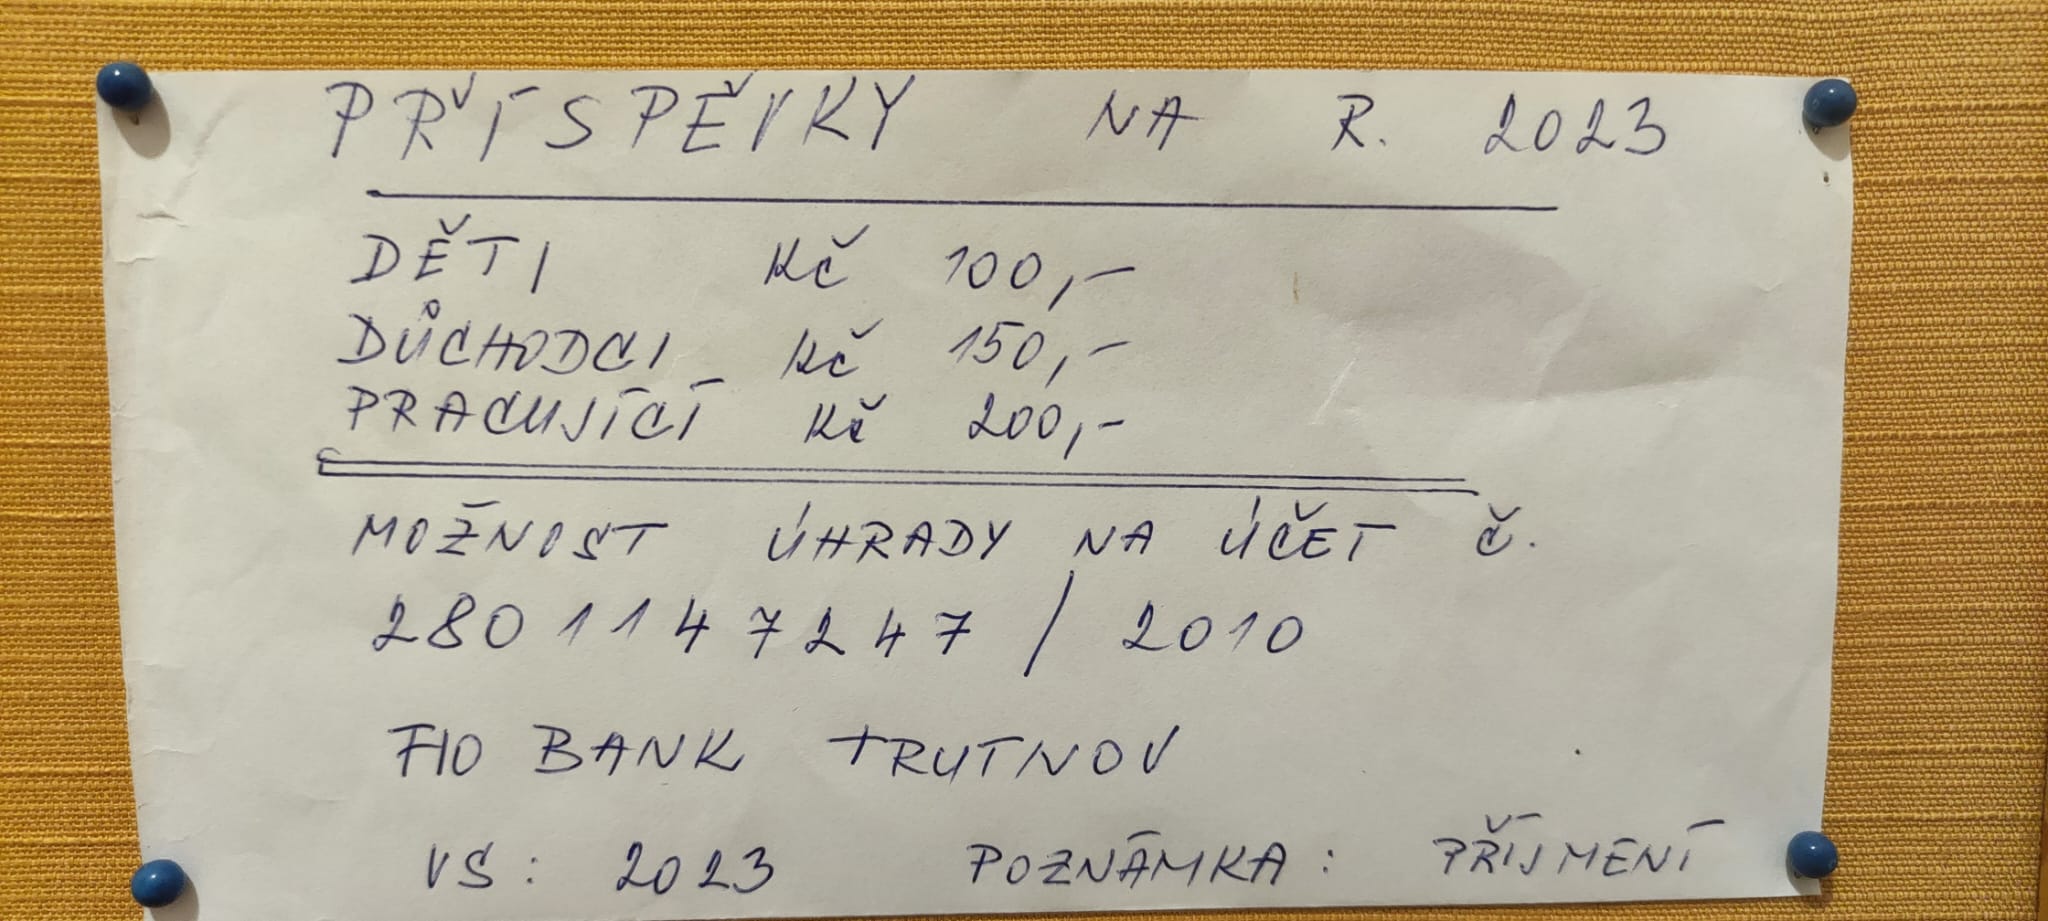 PŘÍSPĚVKY NA R. 2023
DĚTI Kč 100,-
DŮCHODCI Kč 150,-
PRACUJÍCÍ Kč 200,-
MOŽNOST ÚHRADY NA ÚČET č.
2801147247 / 2010
FIO BANK TRUTNOV
VS: 2023 POZNÁMKA: PŘÍJMENÍ